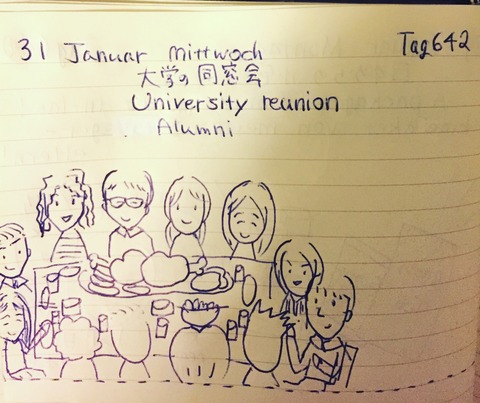 31 Januar Mittwoch
Tag 642
大学の同窓会
University reunion
Alumni